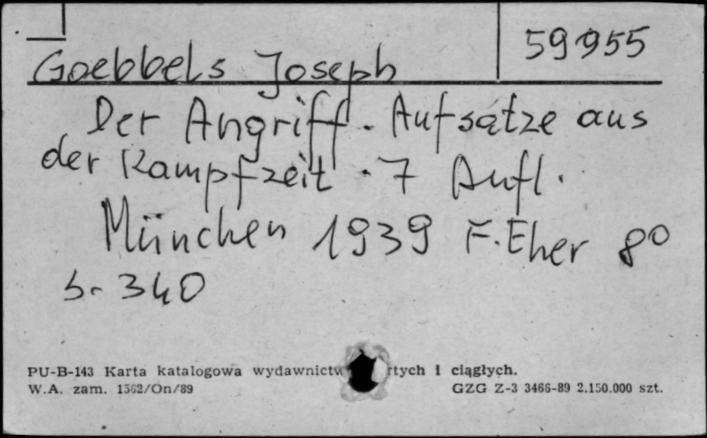 Goebbels Joseph 59955
Der Angriff. Aufsätze aus
der Kampfzeit. 7 Aufl.
München 1939 F. Eher 8°
s. 340
PU-B-143 Karta katalogowa wydawnictw rtych i ciągłych.
W.A. zam. 1562/On/89 GZG Z-3 3466-89 2.150.000 szt.